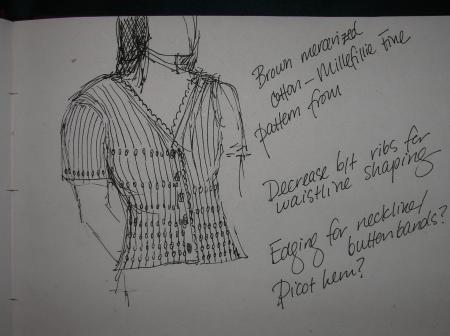 Brown mercerized
cotton - Millefillie Fine
pattern from
Decrease b/t ribs for
waistline shaping
Edging for neckline/
buttonbands?
Picot hem?